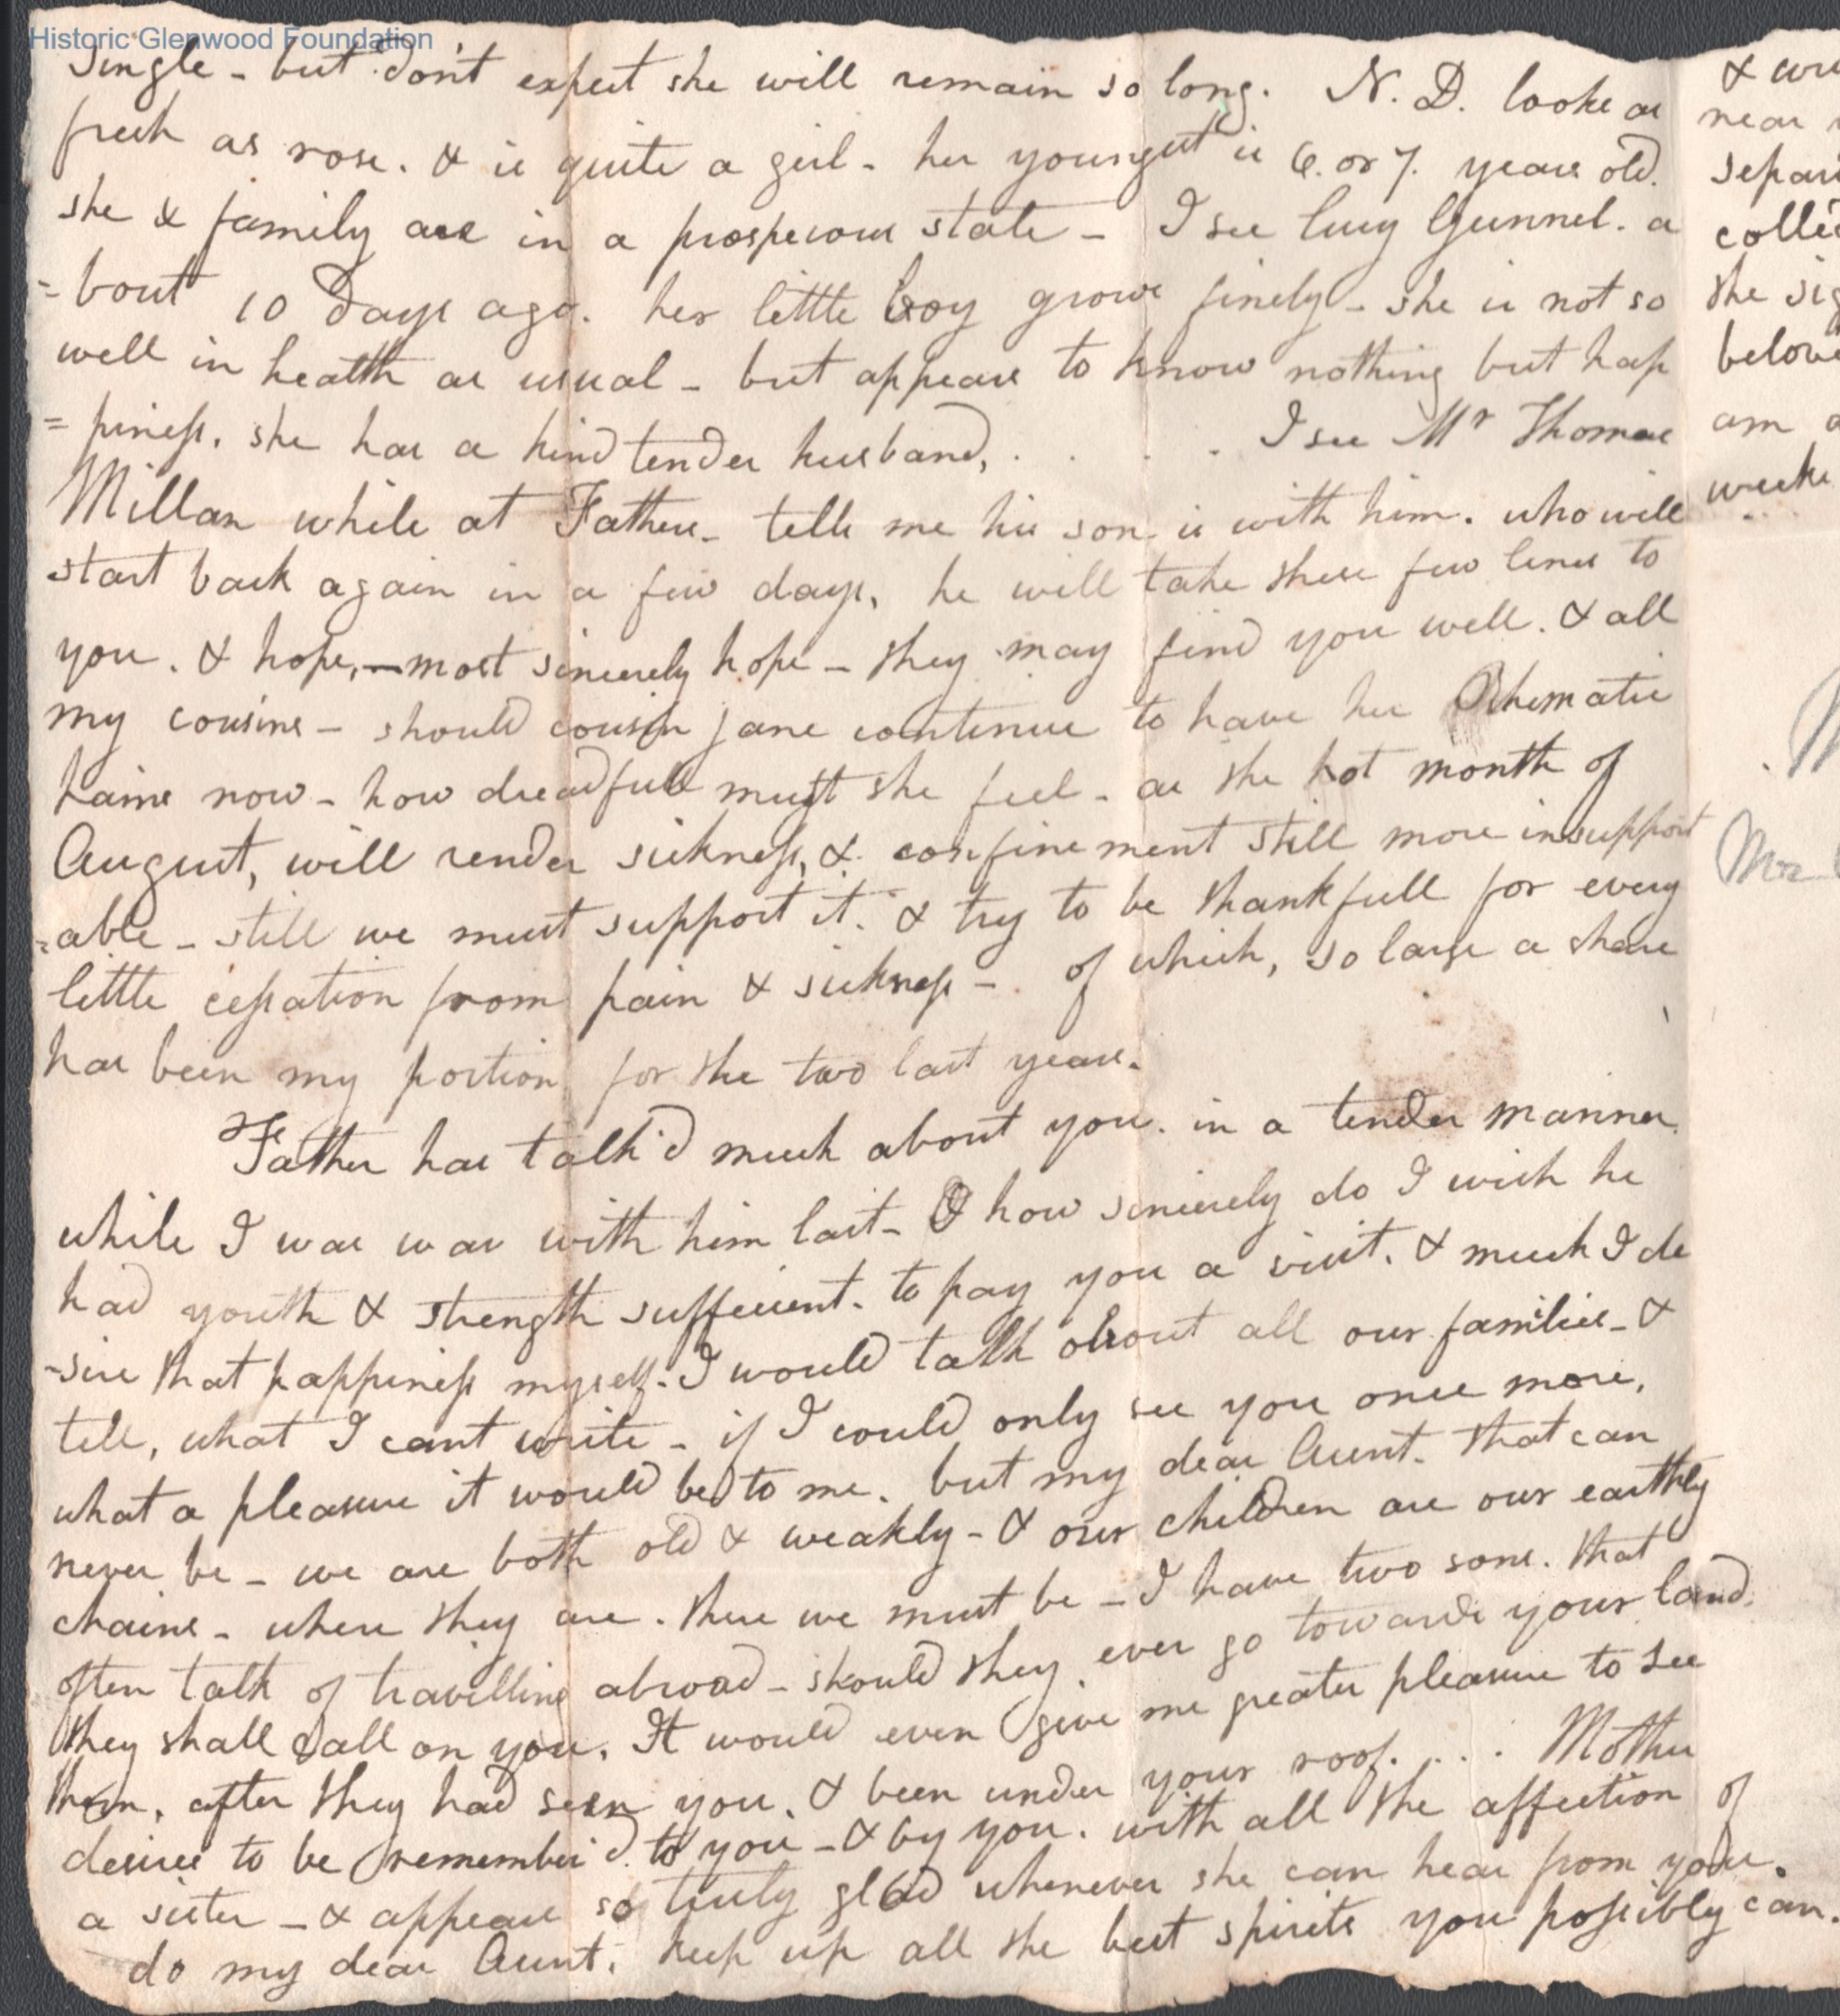 Historic Glenwood Foundation
single - but don't expect she will remain so long. N. D. looks as
fresh as rose. & is quite a girl - her youngest is 6. or 7. years old.
she & family are in a prosperous state - I see Lucy Gunnel. a
=bout 10 Days ago. her little boy grows finely - she is not so
well in health as usual - but appears to know nothing but hap
=piness. she has a kind tender husband, . . . . I see Mr Thomas
Millan while at Fathers - tells me his son is with him. who will
start back again in a few days, he will take these few lines to
you. & hope, - most sincerely hope - they may find you well. & all
my cousins - should cousin Jane continue to have her Rhematic
pains now - how dreadfull must she feel - as the hot month of
August, will render sickness, & confinement still more insupport
=able - still we must support it. & try to be thankfull for every
little cessation from pain & sickness - of which, so large a share
has been my portion for the two last years.
Father has talk'd much about you. in a tender manner
while I was was with him last - O how sincerely do I wish he
had youth & strength sufficient. to pay you a visit. & much I de
-sire that happiness myself. I would talk about all our families - &
tell, what I cant write - if I could only see you once more,
what a pleasure it would be to me. but my dear Aunt. that can
never be - we are both old & weakly - & our children are our earthly
chains - where they are. there we must be - I have two sons. that
often talk of travelling abroad - should they ever go towards your land.
they shall call on you. It would even give me greater pleasure to see
them, after they had seen you, & been under your roof. . . . Mother
desires to be remember'd to you - & by you. with all the affection of
a sister - & appears so truly glad whenever she can hear from you.
do my dear Aunt, keep up all the best spirits you possibly can.
&
near
separ
colle
the sig
belove
am
weeks
Mrs